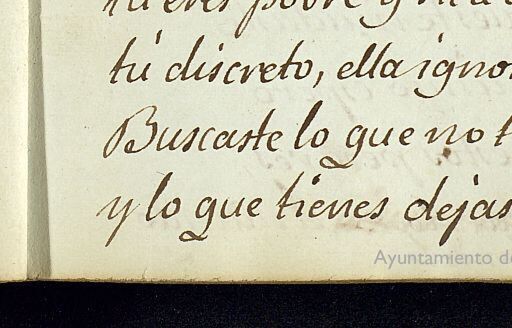 tú eres pobre y
tú discreto, ella igno
Buscaste lo que no t
y lo que tienes dejas
Ayuntamiento de